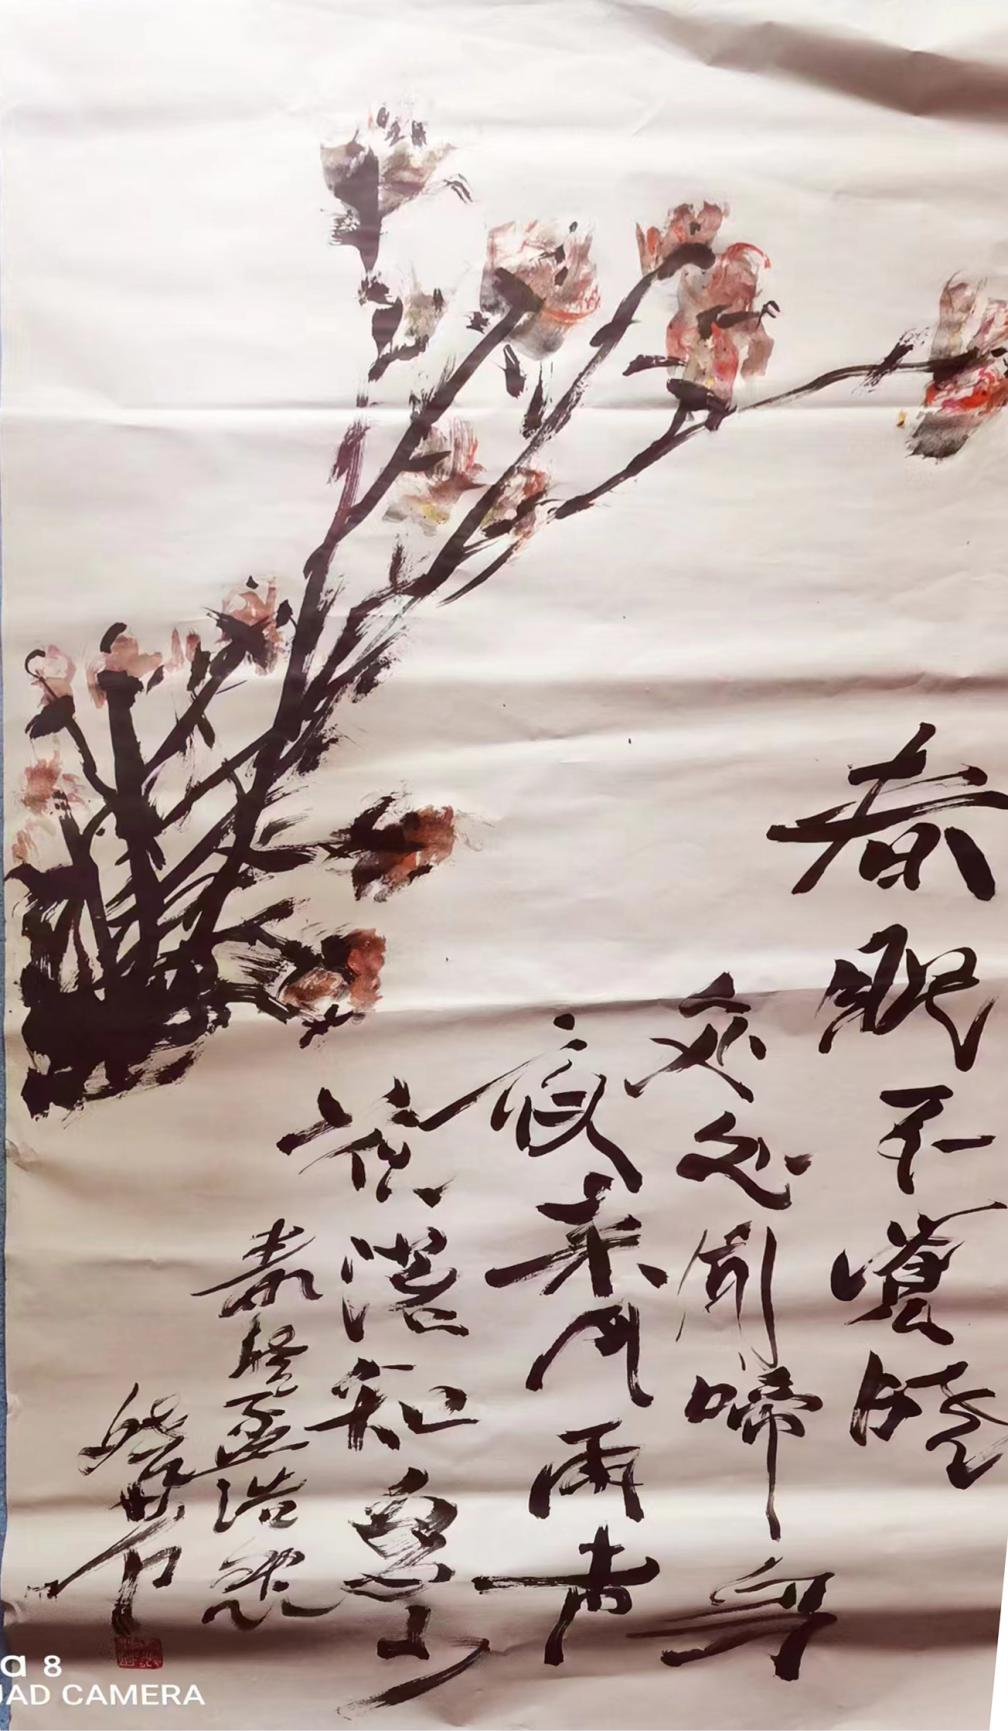 春眠不觉晓
处处闻啼鸟
夜来风雨声
花落知多少
春晓孟浩然
a 8
UAD CAMERA